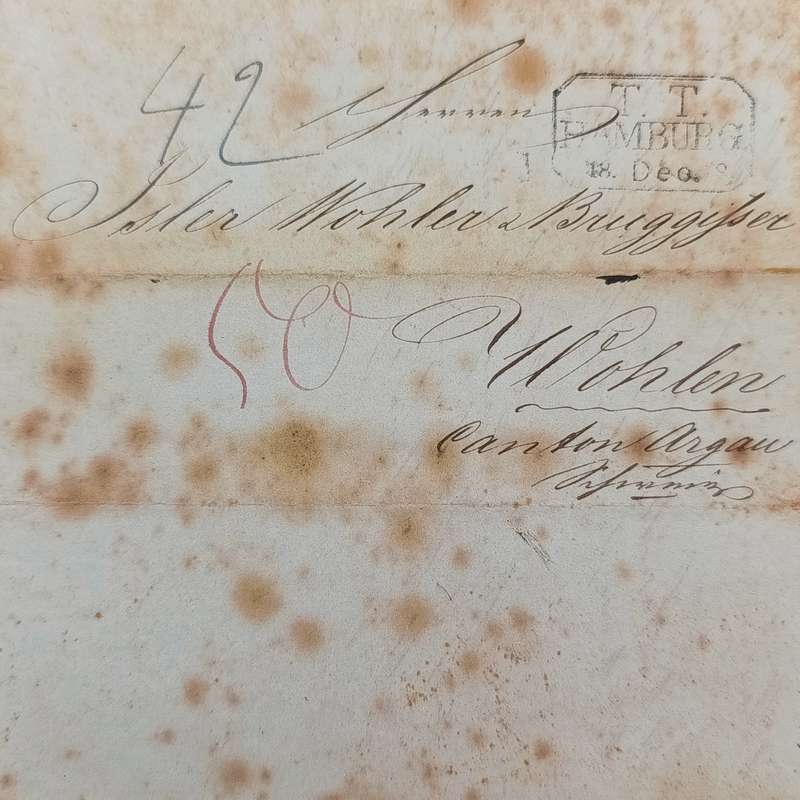 42
Herren
T. T.
HAMBURG
18. Dec.
Isler Wohler & Bruggisser
50
Wohlen
Canton Argau
Schweiz